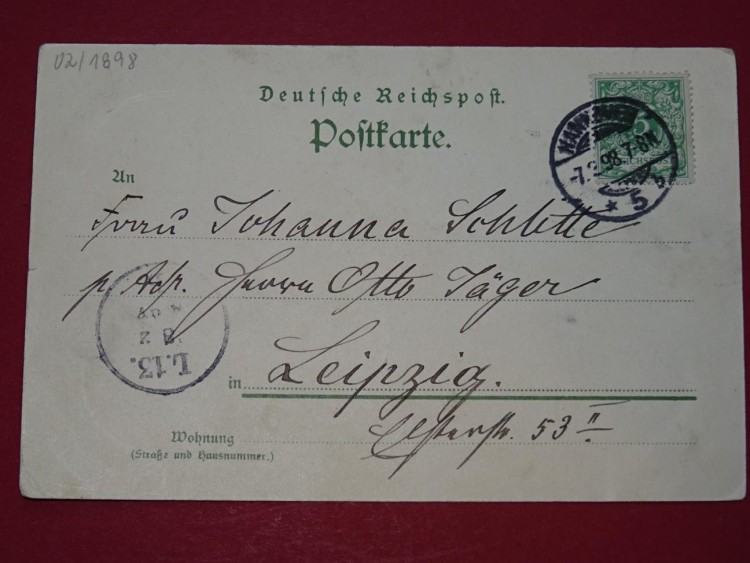 02/1898
Deutsche Reichspost.
Postkarte.
5
7-8N
* 5 b
An
Frau Johanna Schlette
p. Adr. Herrn Otto Jäger
L.13.
8 2
in Leipzig.
Elsterstr. 53 II
Wohnung
(Straße und Hausnummer.)